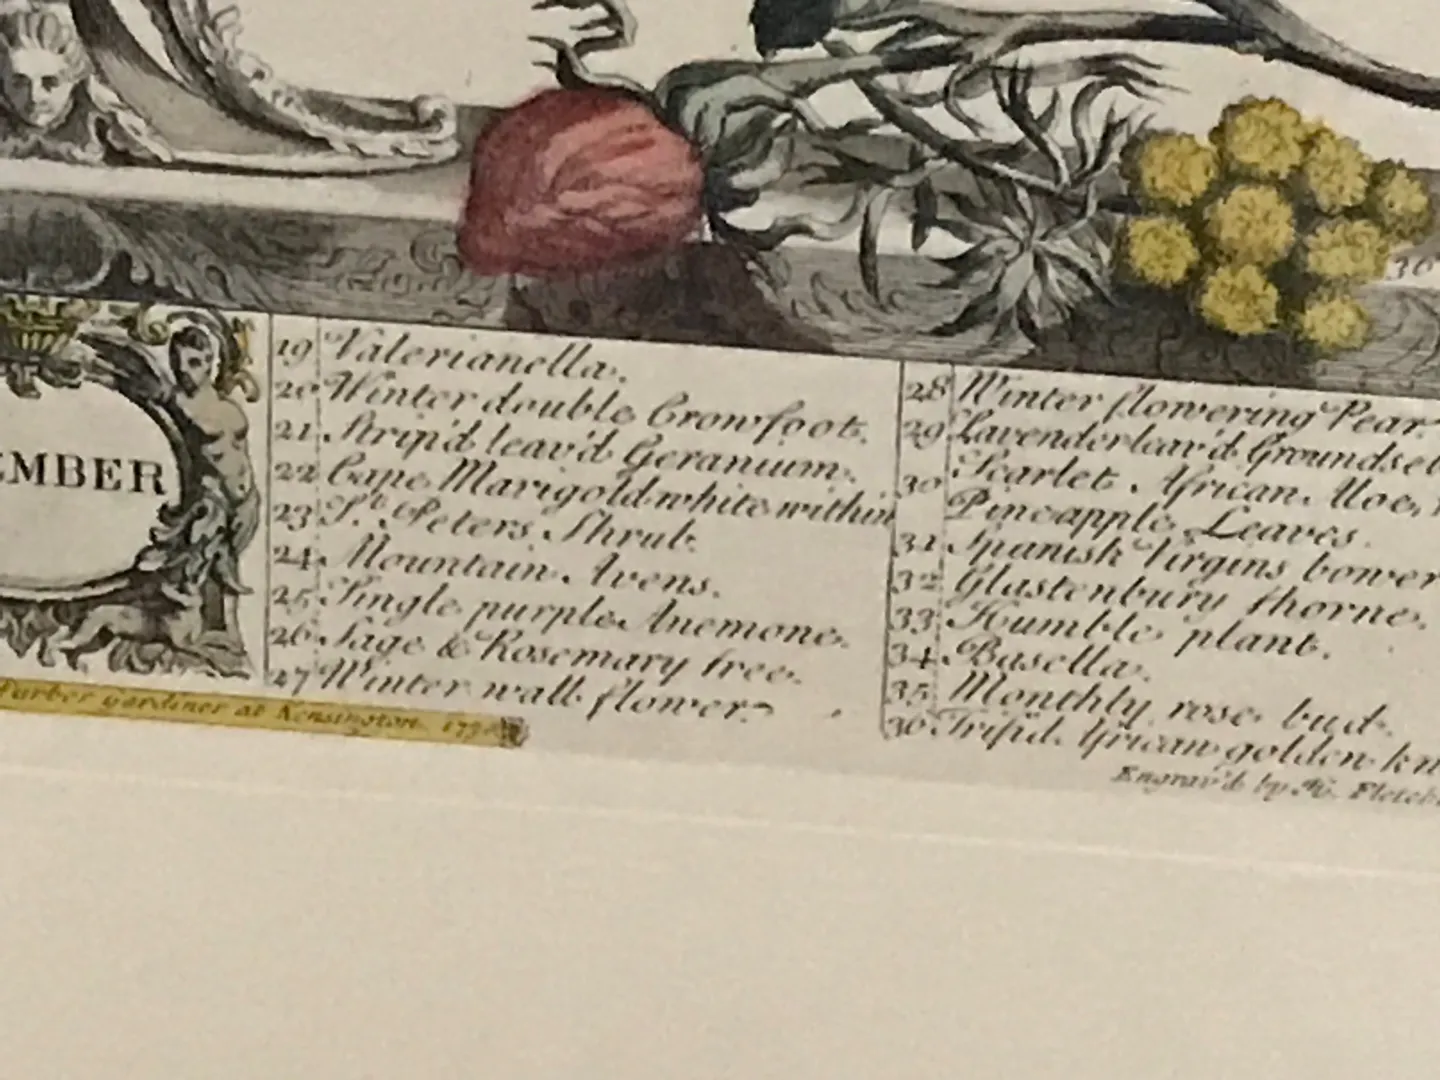 36
EMBER
19 Valerianella.
20 Winter double Crowfoot.
21 Strip'd leav'd Geranium.
22 Cape Marigold white within
23 St. Peters Shrub.
24 Mountain Avens.
25 Single purple Anemone.
26 Sage & Rosemary tree.
27 Winter wall flower.
28 Winter flowering Pear.
29 Lavender leav'd Groundsel
30 Scarlet African Aloe,
Pineapple Leaves.
31 Spanish Virgins bower
32 Glastenbury thorne.
33 Humble plant.
34 Basella.
35 Monthly rose bud.
36 African golden kn
Furber gardiner at Kensington.
Engrav'd by H. Fletch